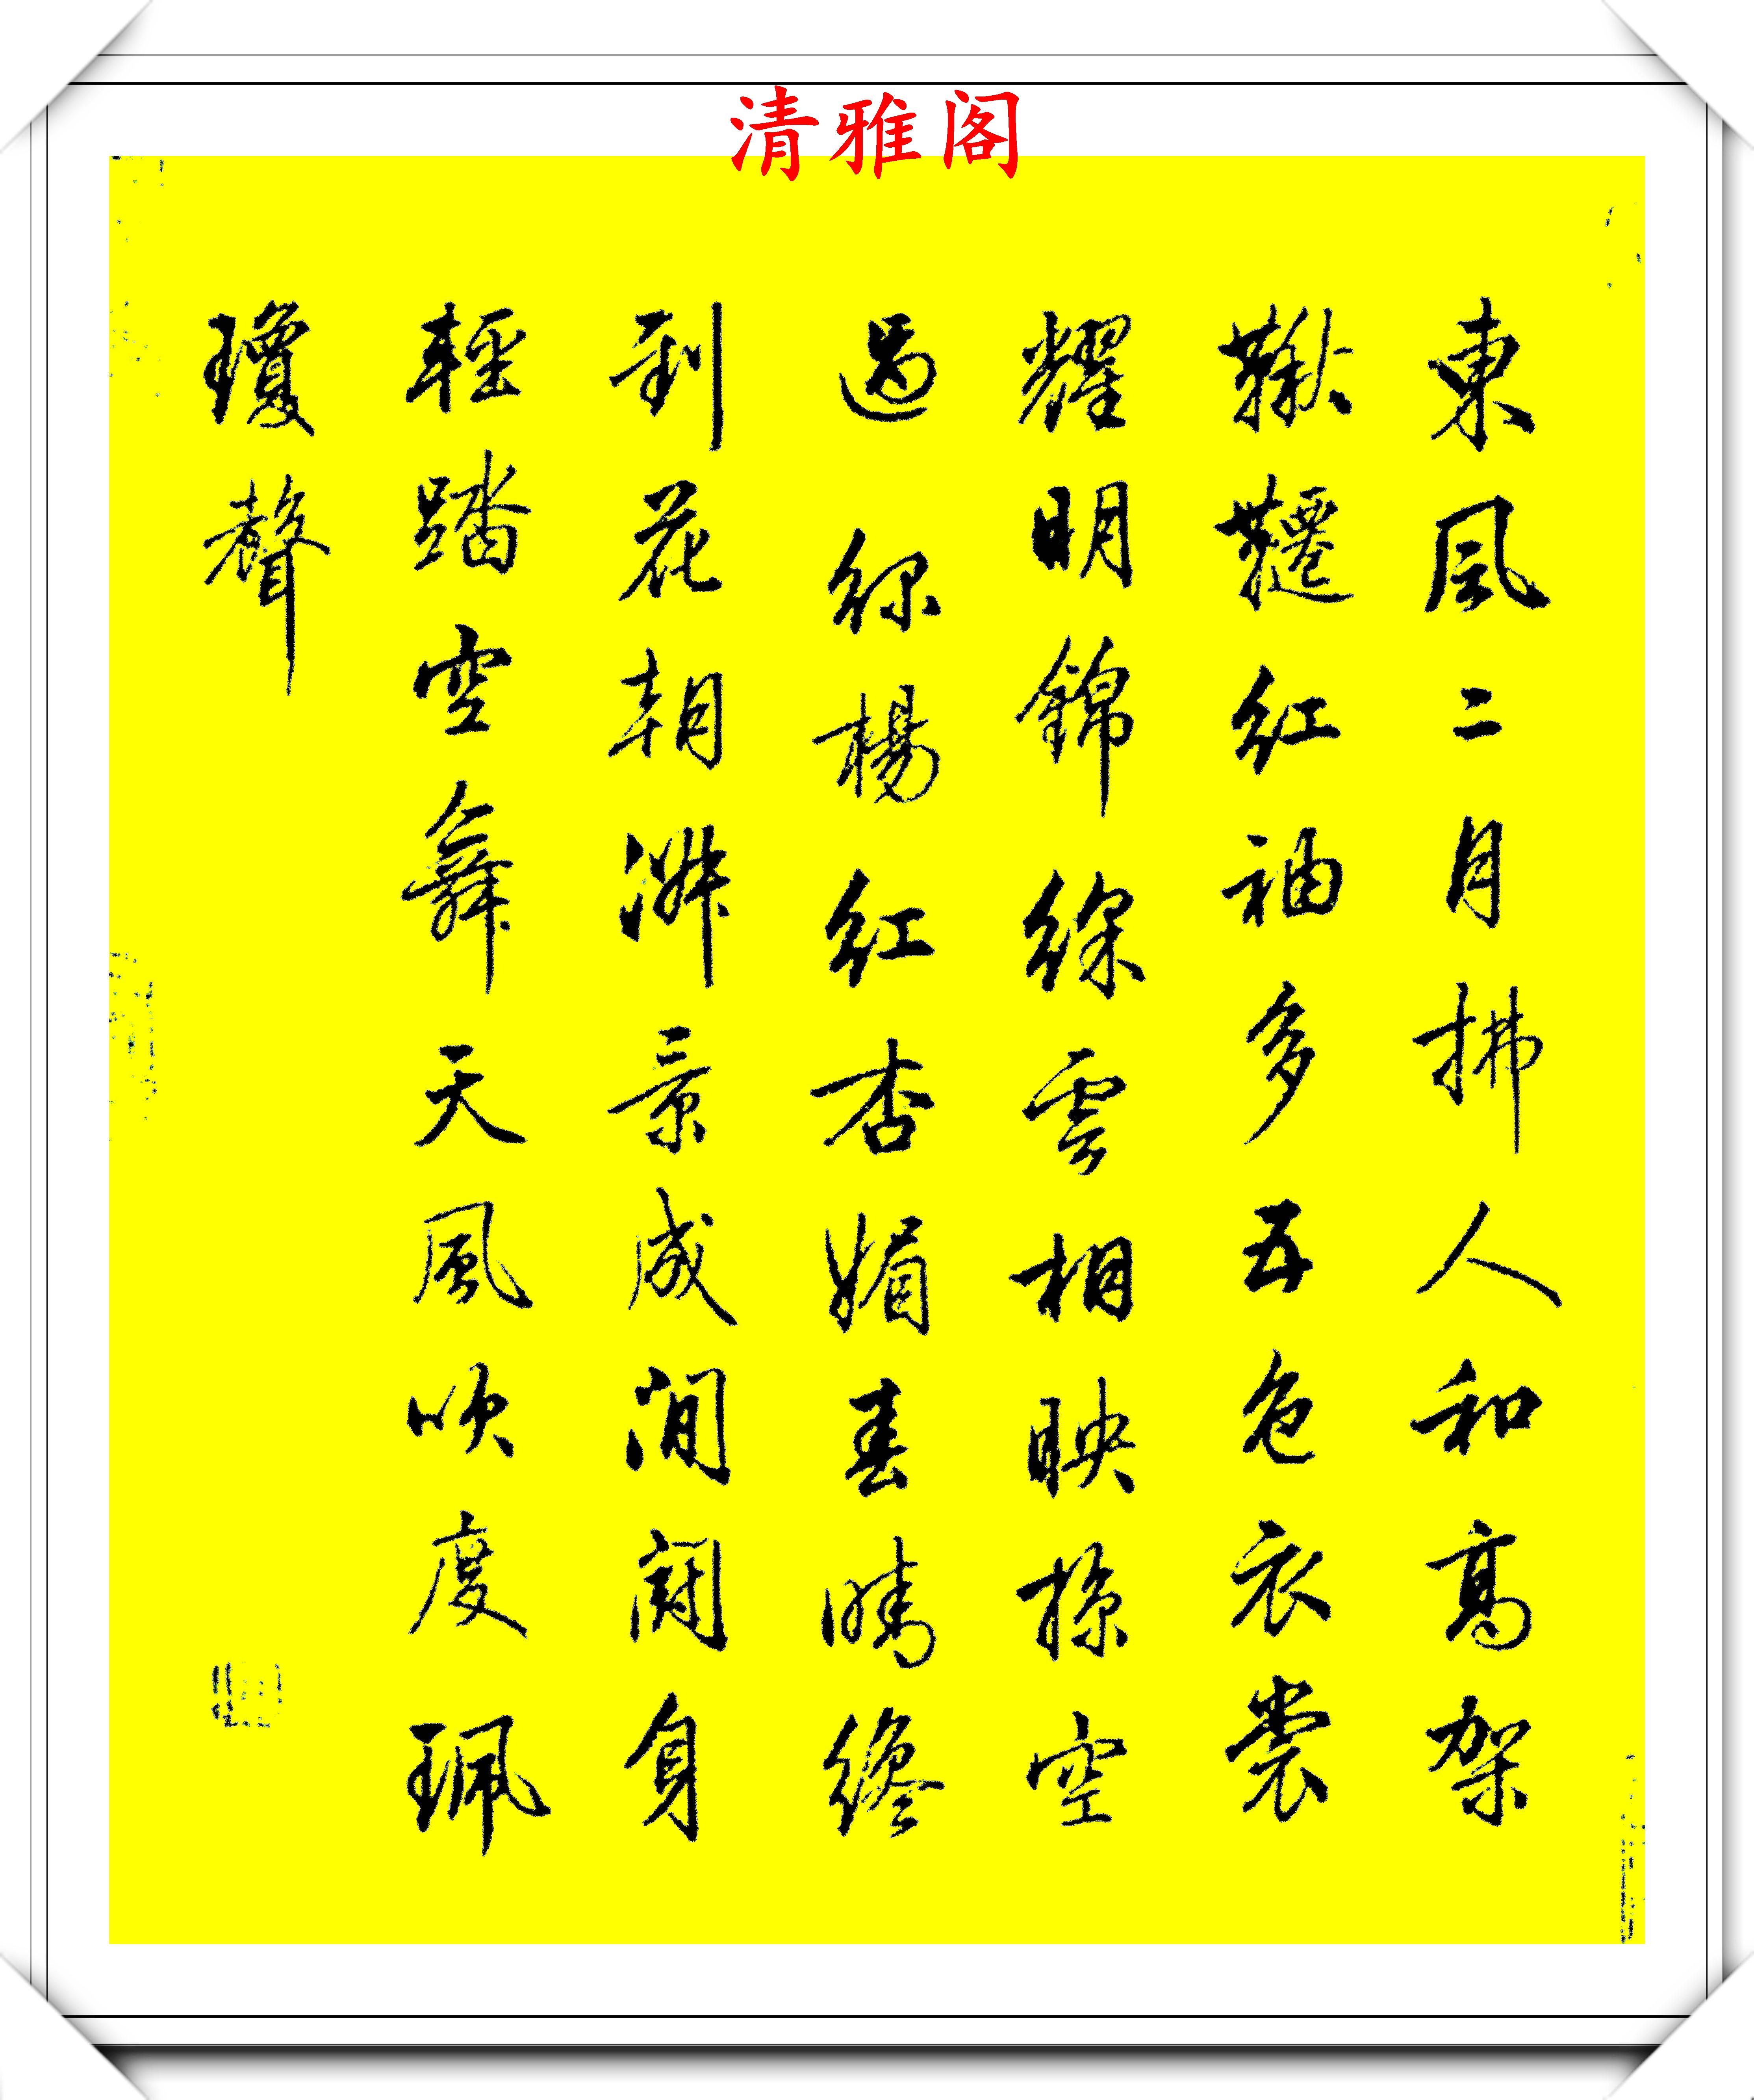 清雅阁
東風二月拂人和高架
鞦韆紅袖多五色衣裳
耀明錦綵雲相映掠空
過綠楊紅杏媚春晴纔
到花朝淑景成閒闘身
輕踏空舞天風吹度珮
瓊聲